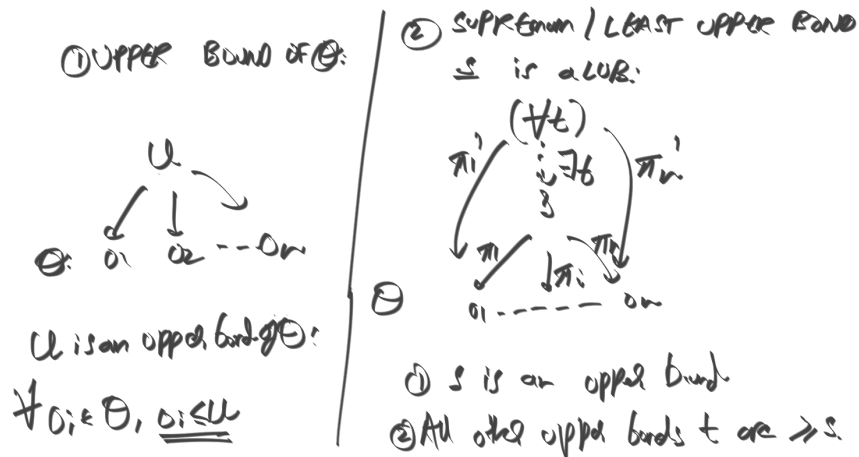 ① UPPER BOUND OF Θ:
U
Θ: O1 O2 --- On
U is an upper bound of Θ:
∀ Oi ∈ Θ, Oi ≤ U
② SUPREMUM / LEAST UPPER BOUND
S is a LUB:
(∀t)
π1' ∃ πn'
S
π1 πi πn
Θ
O1 - - - - - - - On
① S is an upper bound
② All other upper bounds t are ≥ S.